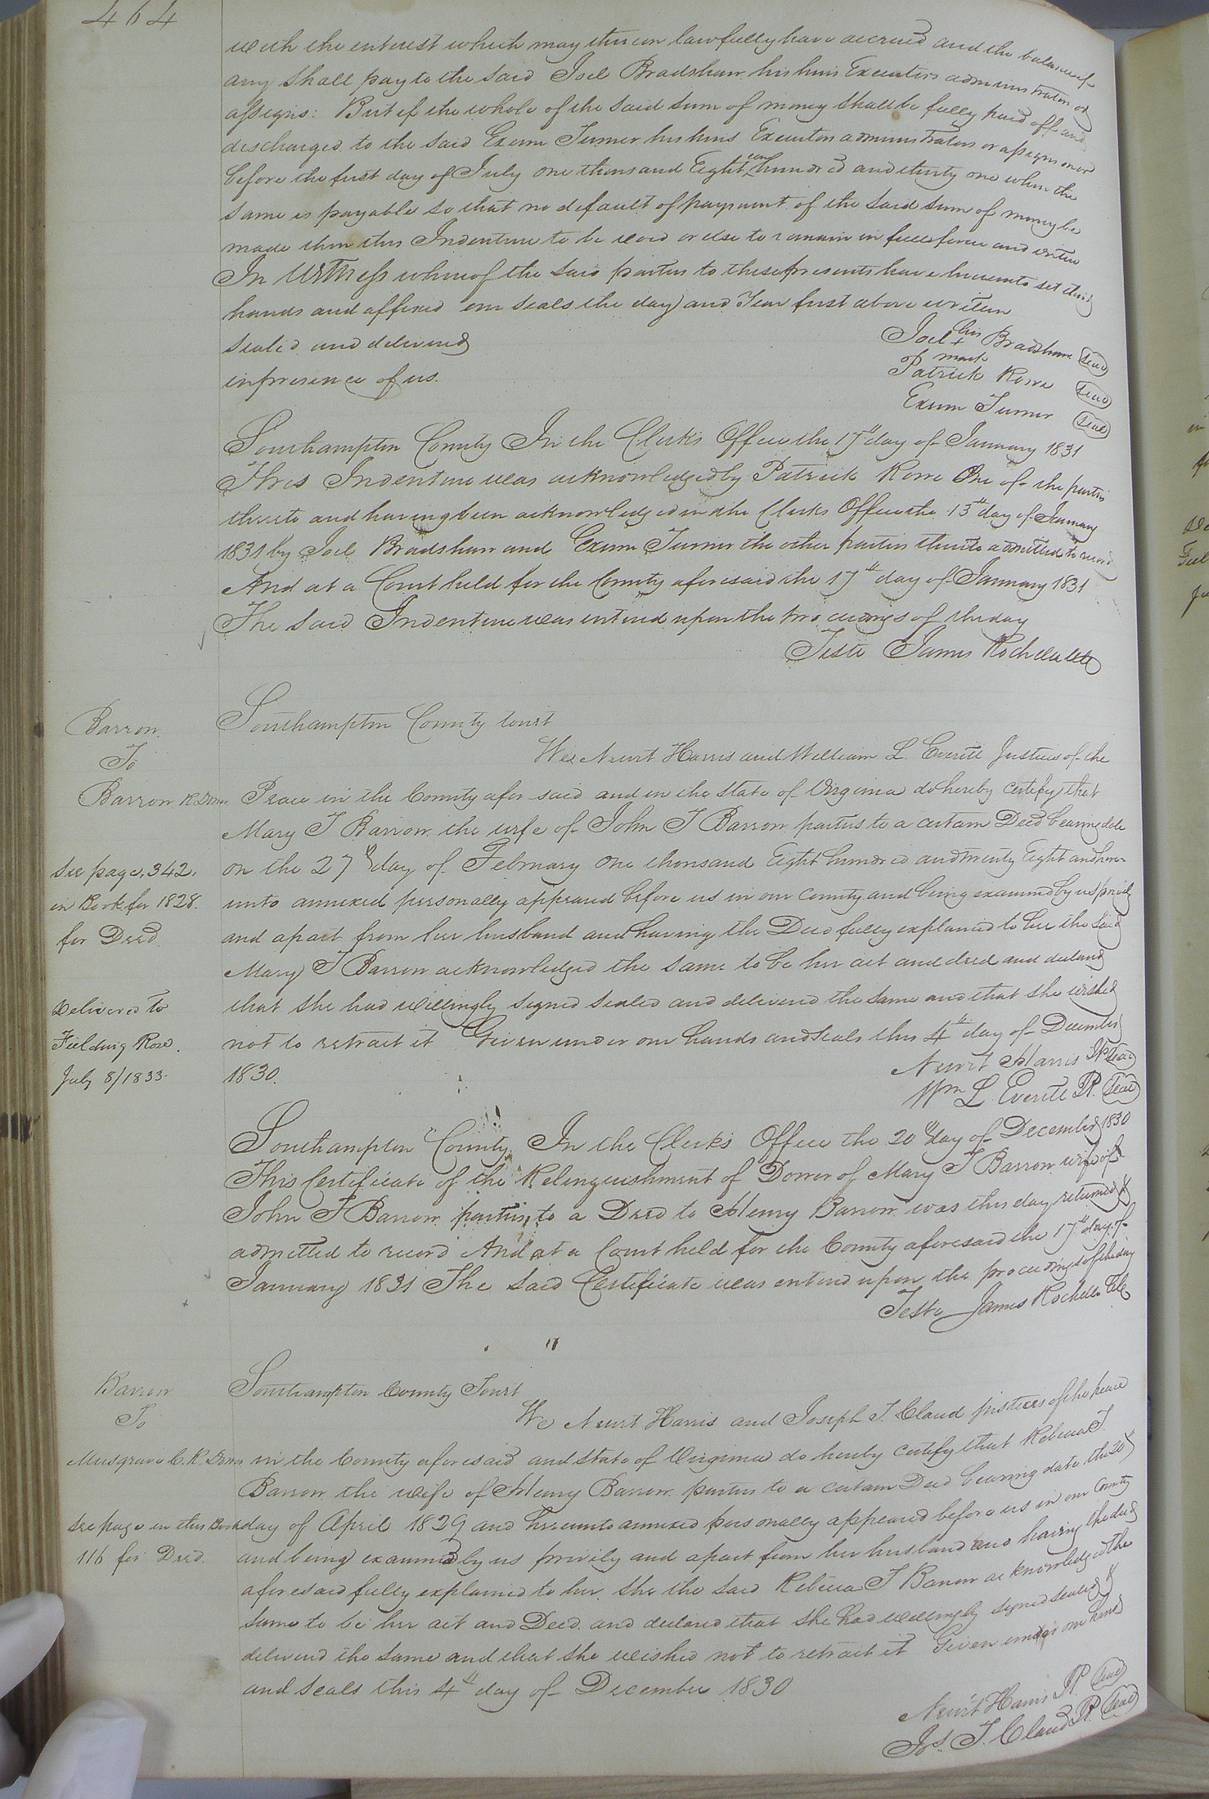 464
with the interest which may thereon lawfully have accrued and the balance if
any shall pay to the said Joel Bradshaw his heirs Executors administrators or
assigns: But if the whole of the said sum of money shall be fully paid off and
discharged to the said Exum Turner his heirs Executors administrators or assigns on or
before the first day of July one thousand Eight hundred and thirty one when the
same is payable so that no default of payment of the said sum of money be
made then this Indenture to be void or else to remain in full force and virtue
In Witness whereof the said parties to these presents have hereunto set their
hands and affixed our seals the day and Year first above written
Sealed and delivered
in presence of us.
Joel his + mark Bradshaw Seal
Patrick Rowe Seal
Exum Turner Seal
Southampton County In the Clerk's Office the 17th day of January 1831
This Indenture was acknowledged by Patrick Rowe One of the parties
thereto and having been acknowledged in the Clerks Office the 13th day of January
1831 by Joel Bradshaw and Exum Turner the other parties thereto admitted to record
And at a Court held for the County aforesaid the 17th day of January 1831
The said Indenture was entered upon the proceedings of the day
Teste James Rochelle Clk
Barron
To
Barron R. Dower
See page 342.
in Book for 1828.
for Deed
Delivered to
Fielding Rose.
July 8/1833.
Southampton County Court
We Newit Harris and William L. Everitt Justices of the
Peace in the County afor said and in the State of Virginia do hereby certify that
Mary T Barrow the wife of John T Barrow parties to a certain Deed bearing date
on the 27th day of February one thousand Eight hundred and twenty Eight and here
unto annexed personally appeared before us in our County and being examined by us privily
and apart from her husband and having the Deed fully explained to her the said
Mary T Barrow acknowledged the same to be her act and deed and declared
that she had willingly signed sealed and delivered the same and that she wished
not to retract it Given under our hands and seals this 4th day of December
1830.
Newit Harris JP Seal
Wm L. Everitt JP. Seal
Southampton County In the Clerk's Office the 20th day of December 1830
This Certificate of the Relinquishment of Dower of Mary T Barrow wife of
John T Barrow parties to a Deed to Henry Barrow was this day returned &
admitted to record And at a Court held for the County aforesaid the 17th day of
January 1831 The said Certificate was entered upon the proceedings of the day
Teste James Rochelle Clk
Barrow
To
Musgrave C. R. Dower
See page in this Book
116 for Deed.
Southampton County Court
We Newit Harris and Joseph T. Claud justices of the peace
in the County aforesaid and State of Virginia do hereby certify that Rebecca T
Barrow the wife of Henry Barrow parties to a certain Deed bearing date the 20
day of April 1829 and hereunto annexed personally appeared before us in our County
and being examined by us privily and apart from her husband and having the deed
aforesaid fully explained to her. she the said Rebecca T Barrow acknowledged the
same to be her act and Deed and declared that she had willingly signed sealed &
delivered the same and that she wished not to retract it Given under our hands
and seals this 4th day of December 1830
Newit Harris JP Seal
Jos. T. Claud JP. Seal